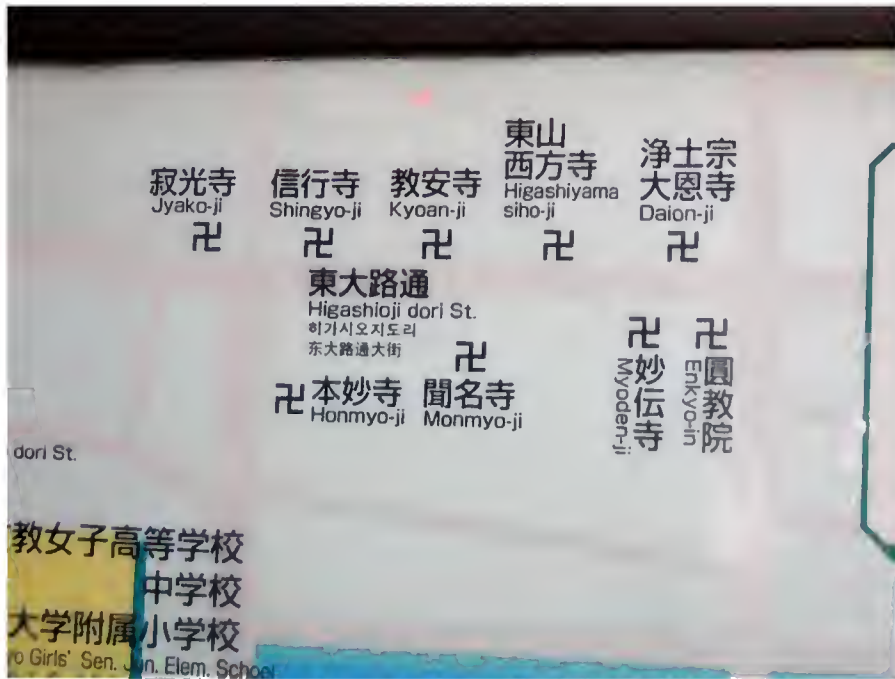 寂光寺
Jyako-ji
卍
信行寺
Shingyo-ji
卍
教安寺
Kyoan-ji
卍
東山
西方寺
Higashiyama
siho-ji
卍
浄土宗
大恩寺
Daion-ji
卍
東大路通
Higashioji dori St.
히가시오지도리
东大路通大街
卍
本妙寺
Honmyo-ji
卍
聞名寺
Monmyo-ji
卍
妙伝寺
Myoden-ji
卍
圓教院
Enkyo-in
dori St.
教女子高等学校
中学校
大学附属小学校
yo Girls' Sen. Jun. Elem. School